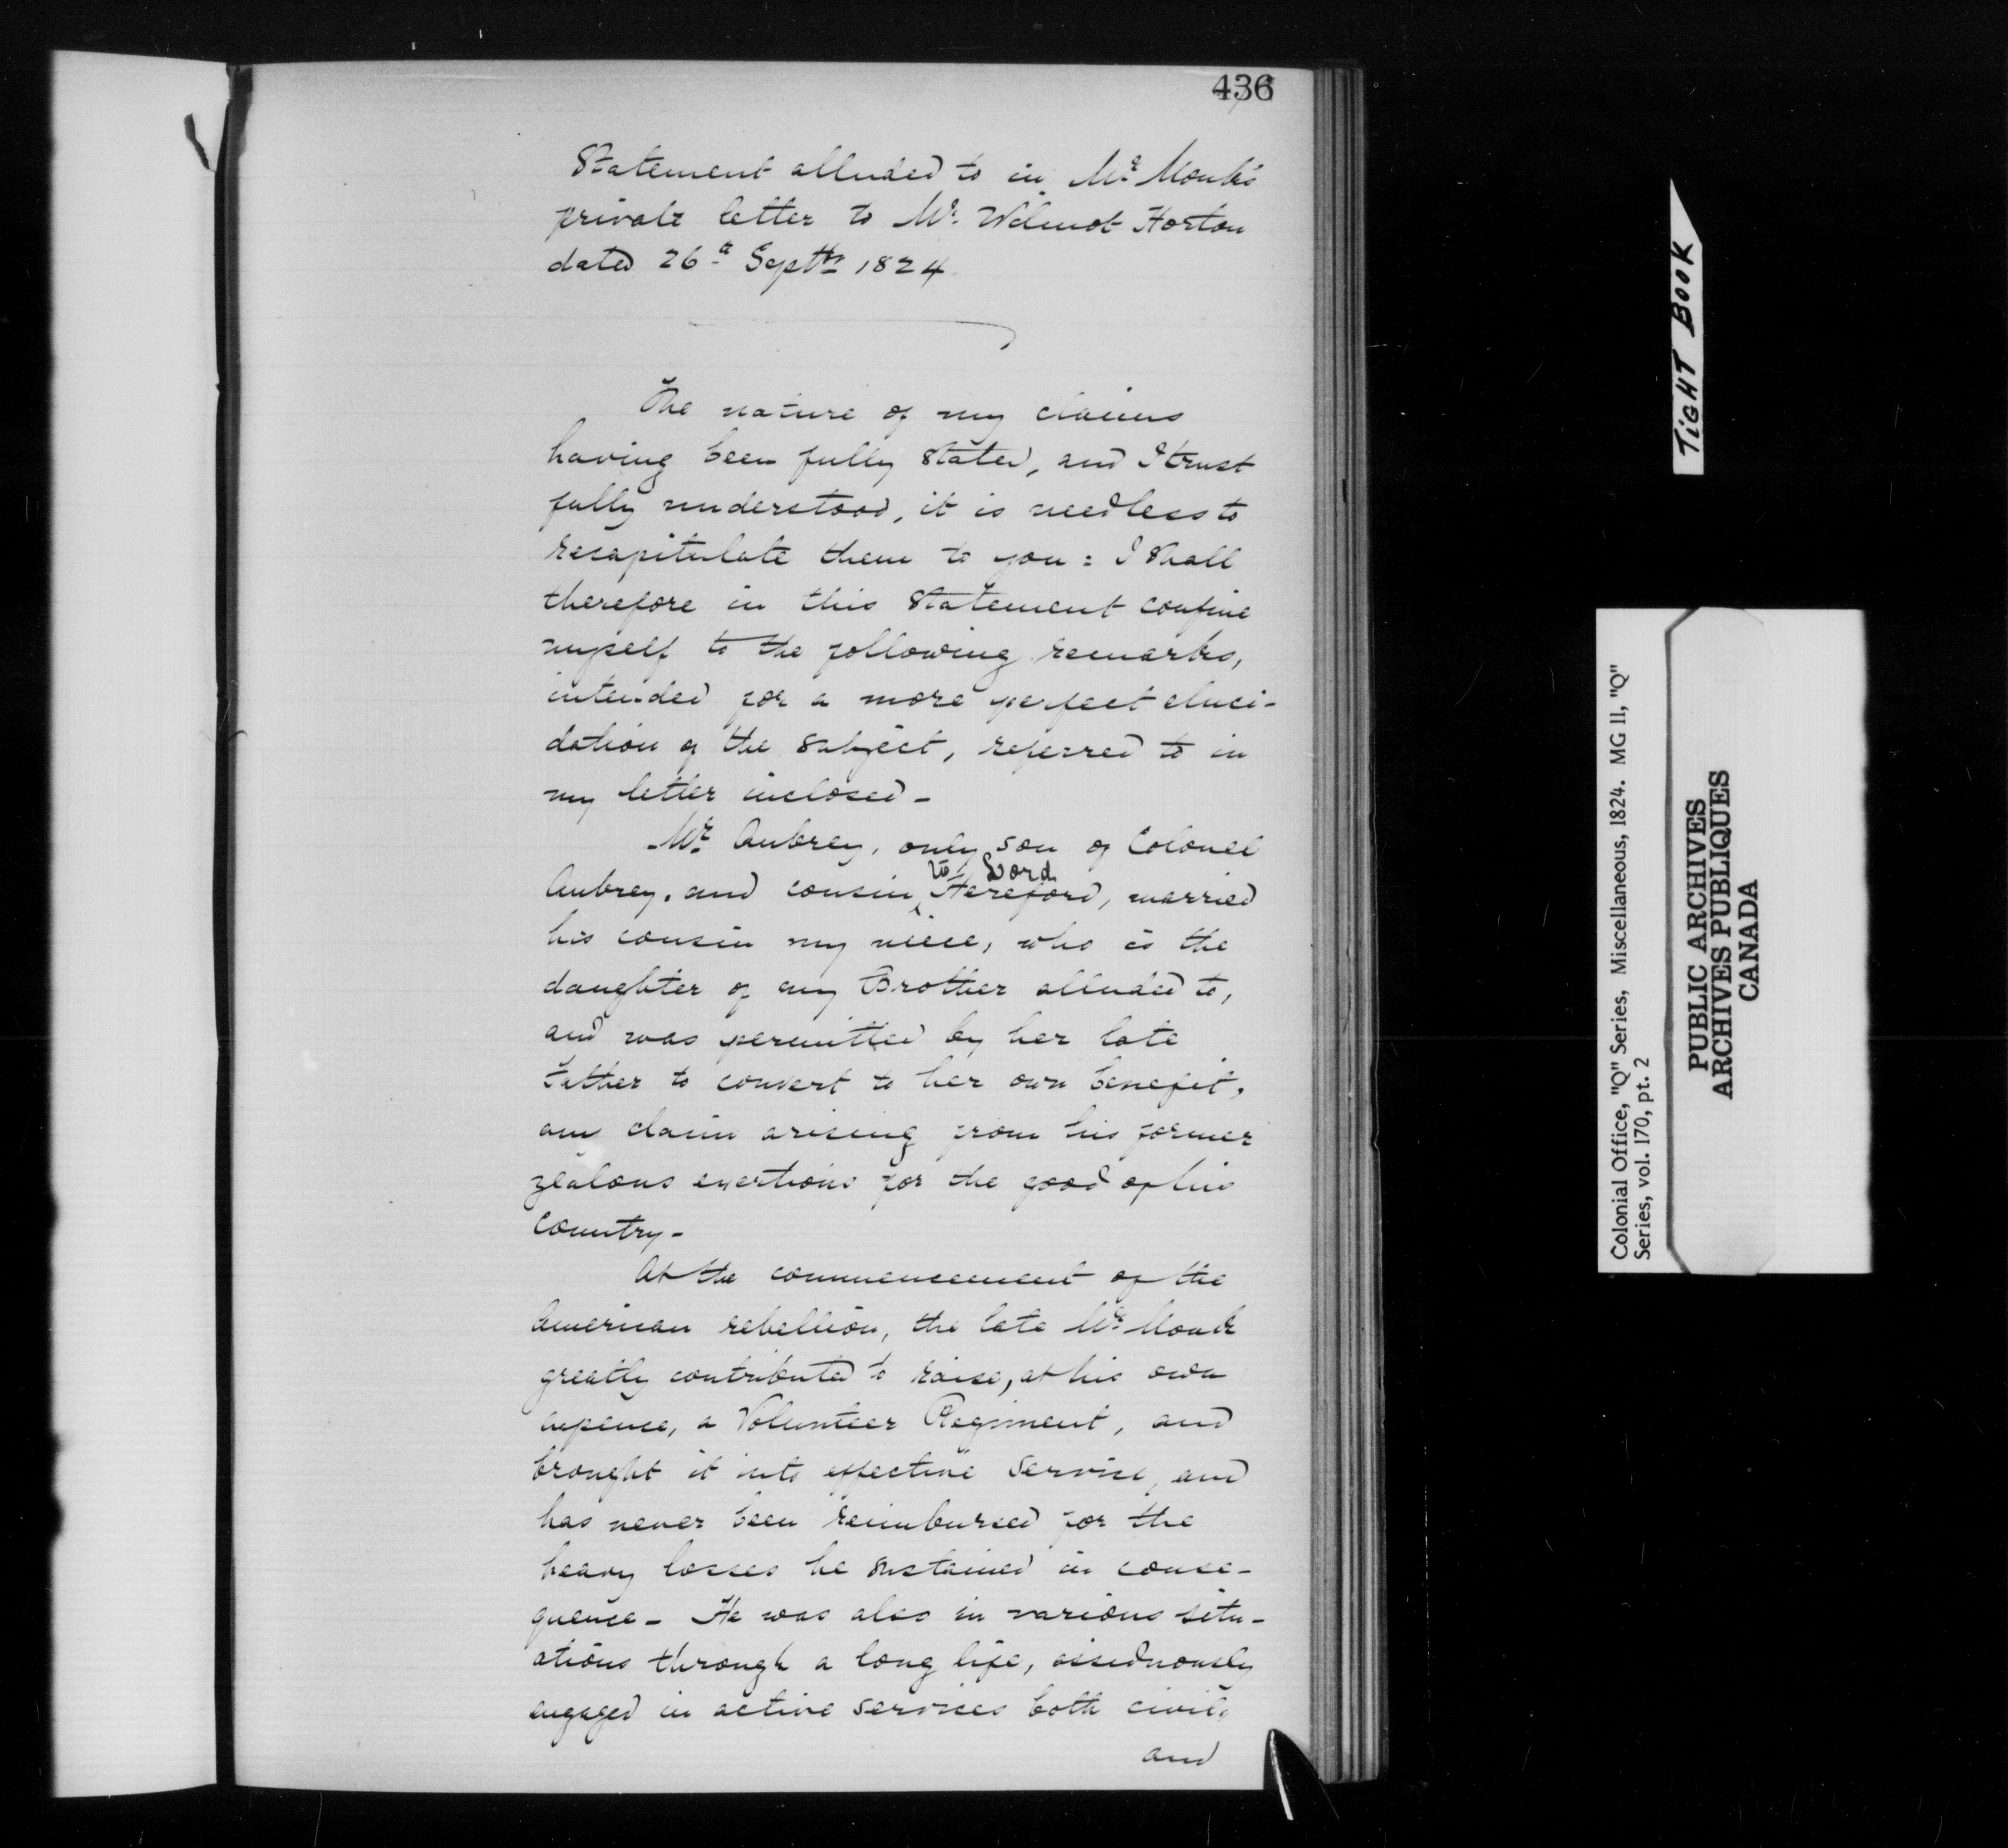 436
Statement alluded to in Mr Monk's
private letter to Mr. Wilmot Horton
dated 26th Septr 1824
The nature of my claims
having been fully stated, and I trust
fully understood, it is needless to
recapitulate them to you: I shall
therefore in this statement confine
myself to the following remarks,
intended for a more perfect eluci-
dation of the subject, referred to in
my letter inclosed -
Mr Aubrey, only son of Colonel
Aubrey, and cousin to Lord Hereford, married
his cousin my niece, who is the
daughter of my Brother alluded to,
and was permitted by her late
Father to convert to her own benefit,
any claim arising from his former
zealous exertions for the good of his
Country -
At the commencement of the
American rebellion, the late Mr Monk
greatly contributed to raise, at his own
expence, a Volunteer Regiment, and
brought it into effective service, and
has never been reimbursed for the
heavy losses he sustained in conse-
quence - He was also in various situ-
ations through a long life, assiduously
engaged in active services both civil,
and
TIGHT BOOK
Colonial Office, "Q" Series, Miscellaneous, 1824. MG 11, "Q"
Series, vol. 170, pt. 2
PUBLIC ARCHIVES
ARCHIVES PUBLIQUES
CANADA